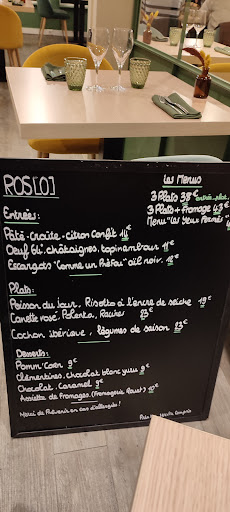 ROS[O]
Les Menus
3 Plats 38€ entrée, plat,
3 Plats + Fromage 43€
Menu "Les Yeux Fermés"
Entrées:
Pâté-Croûte-citron confit 11€
Oeuf 64°, châtaignes, topinambours 11€
Escargots "Comme un
ail noir. 12€
Plats:
Poisson du jour, Risotto à l'encre de seiche 19€
Canette rosé, Polenta, Raisins 23€
Cochon ibérique, légumes de saison 23€
Desserts:
Pomm'Coin 9€
Clémentines, chocolat blanc yuzu 9€
Chocolat, Caramel 9€
Assiette de Fromages (Fromagerie
10€
Merci de Prévenir en cas d'allergies!
Prix
Compris